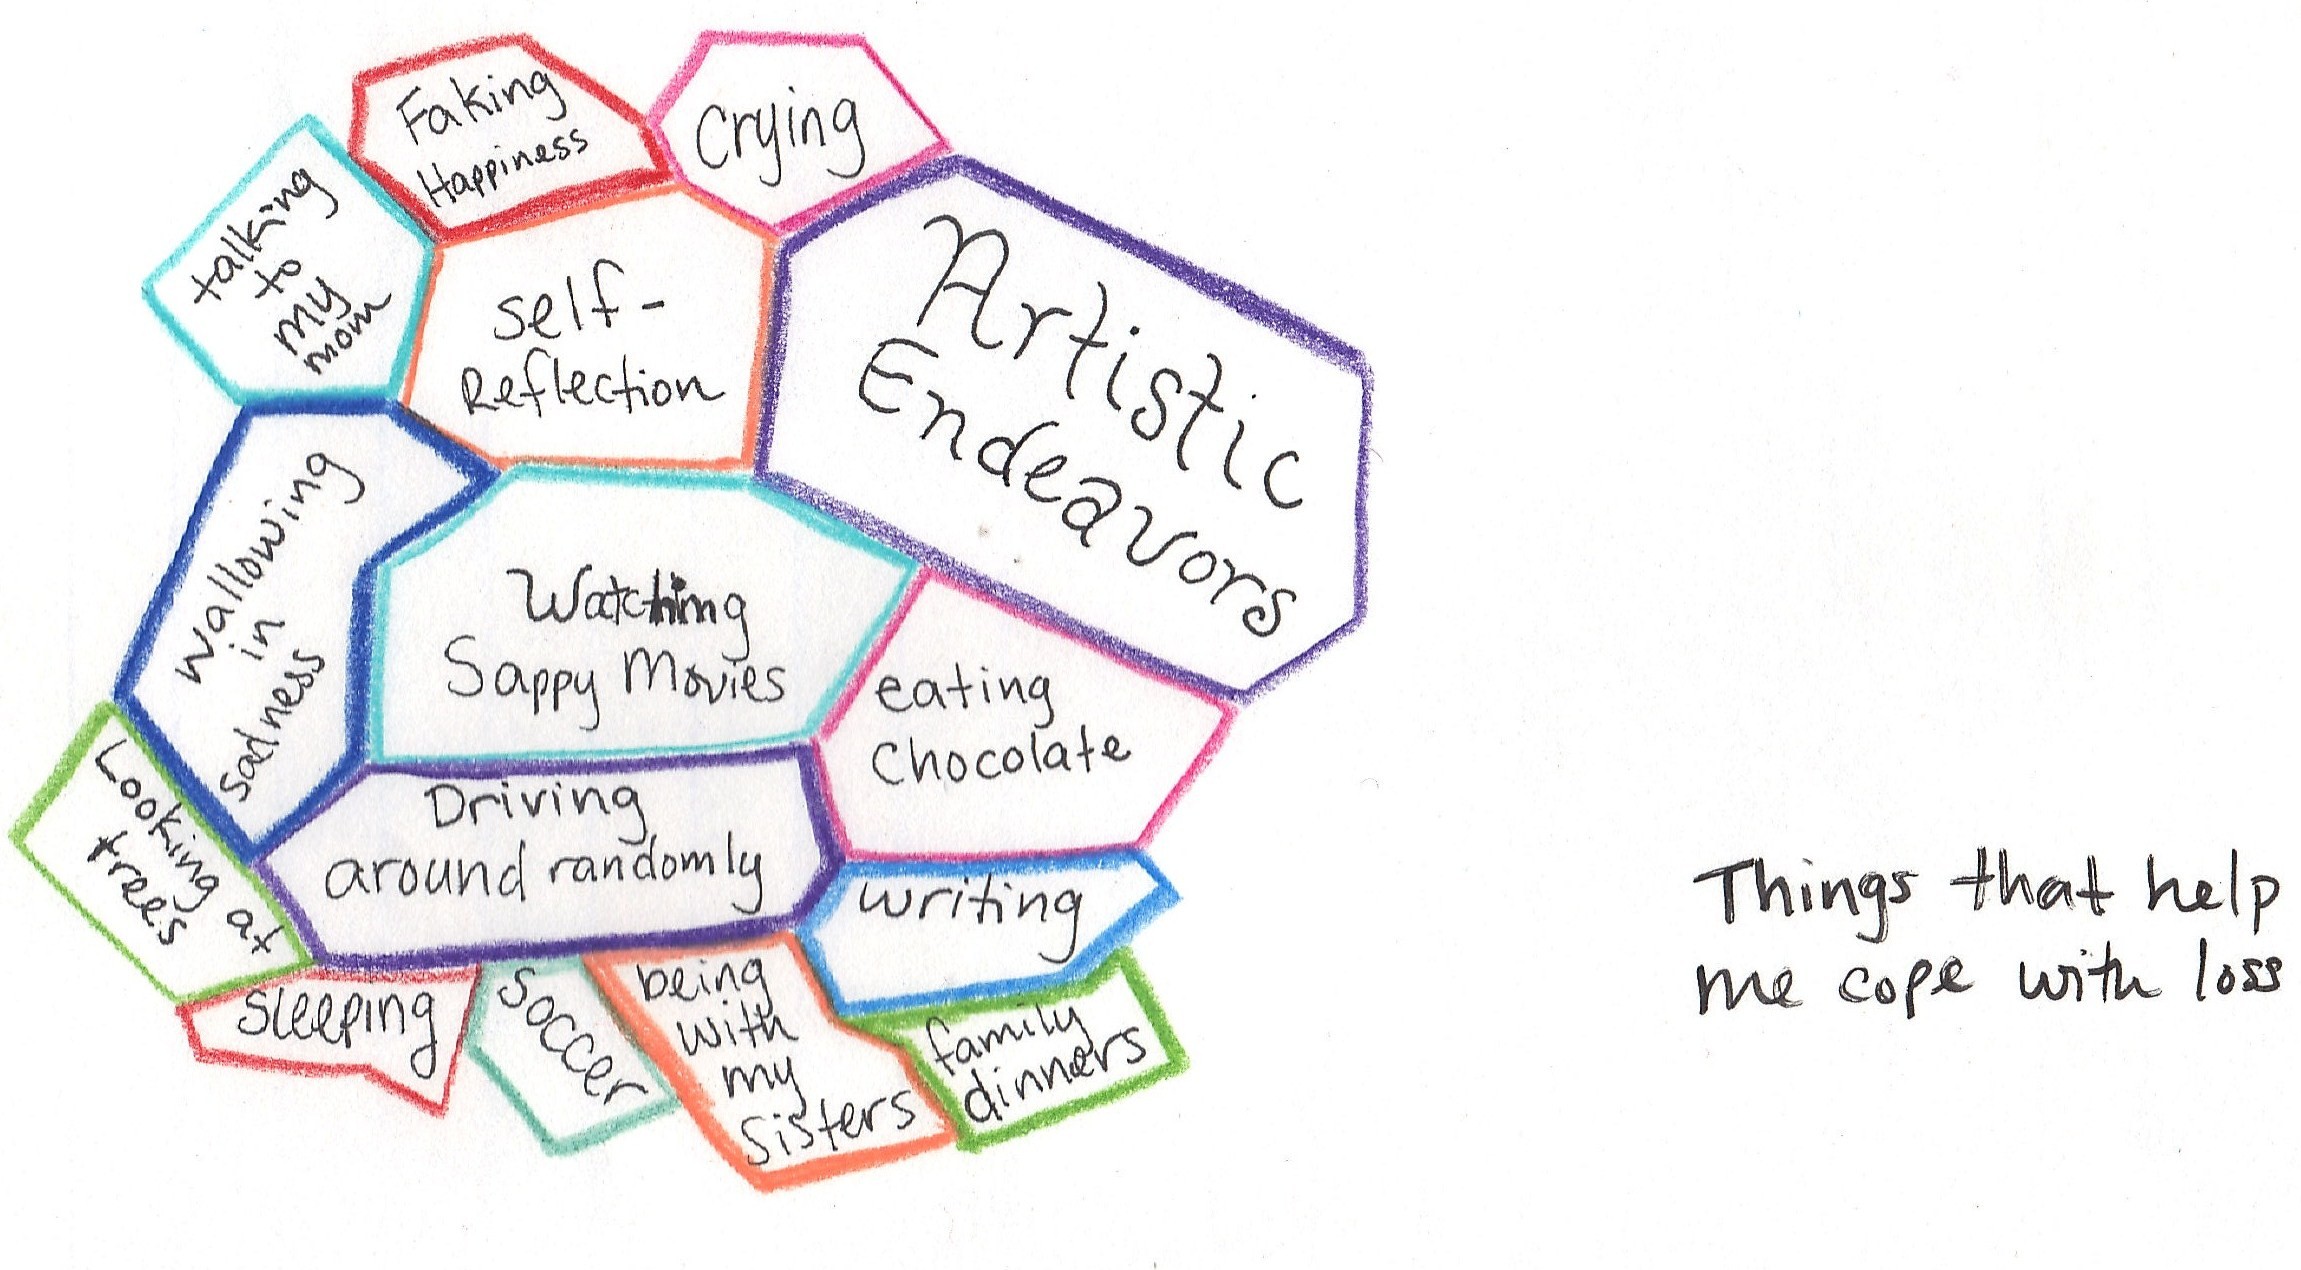 Faking
Happiness
Crying
talking
to
my
mom
self-
Reflection
Artistic
Endeavors
wallowing
in
sadness
Watching
Sappy Movies
eating
Chocolate
Looking at
trees
Driving
around randomly
writing
sleeping
soccer
being
with
my
sisters
family
dinners
Things that help
me cope with loss